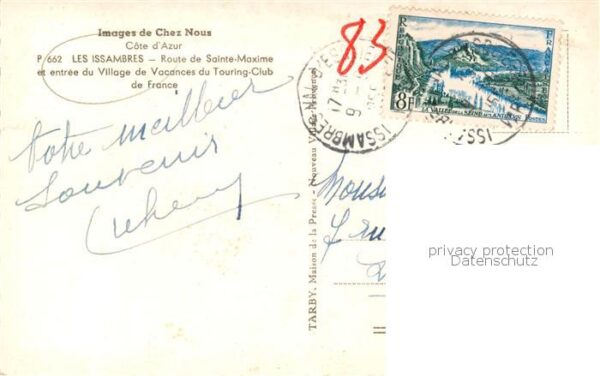 Images de Chez Nous
Côte d'Azur
P 662 LES ISSAMBRES — Route de Sainte-Maxime
et entrée du Village de Vacances du Touring-Club
de France
Votre meilleur
souvenir
TARBY, Maison de la Presse - Nouveau Village Provençal
83
ISSAMBRES
17 H
9
REPUBLIQUE FRANÇAISE
8F
LA VALLÉE DE LA SEINE AUX ANDELYS
POSTES
privacy protection
Datenschutz